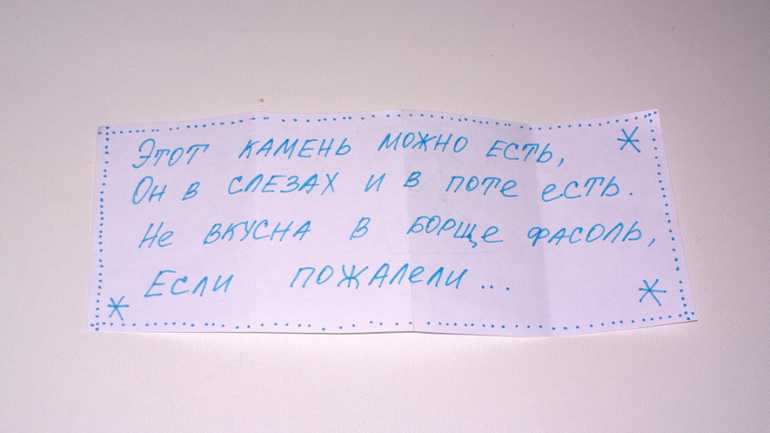 Этот камень можно есть,
Он в слезах и в поте есть.
Не вкусна в борще фасоль,
Если пожалели...